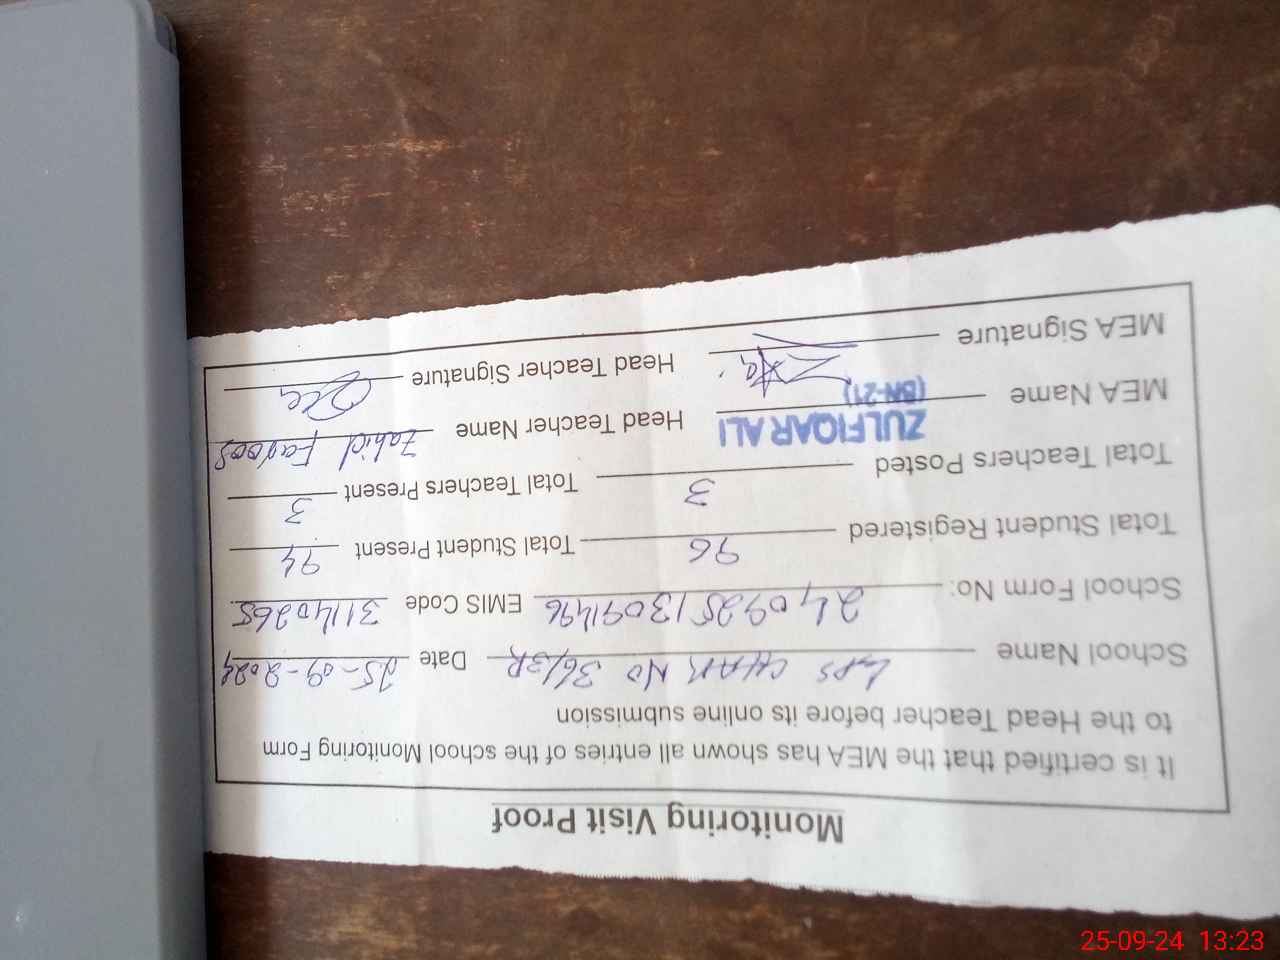 Monitoring Visit Proof
It is certified that the MEA has shown all entries of the school Monitoring Form
to the Head Teacher before its online submission
School Name GPS CHAK NO 36/3R Date 25-09-2024
School Form No: 24092513091496 EMIS Code 31140265
Total Student Registered 96 Total Student Present 94
Total Teachers Posted 3 Total Teachers Present 3
MEA Name ZULFIQAR ALI (BN-21) Head Teacher Name Zahid Farooq
MEA Signature Head Teacher Signature
25-09-24 13:23